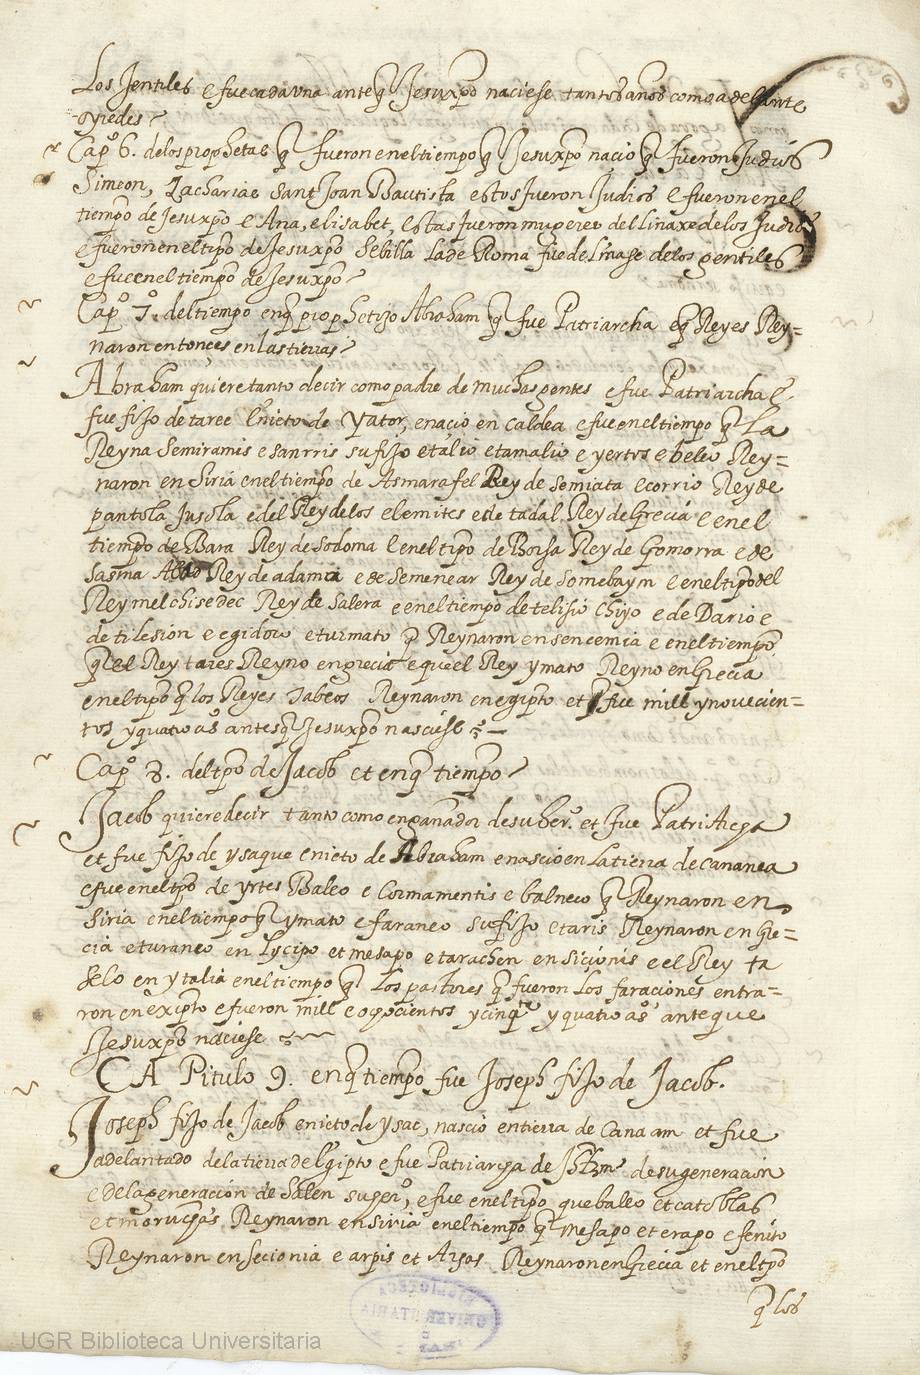 Los Jentiles e fue cada vna ante q̃ Jesuxpo naciese tantos años como adelante
oyredes
Capo 6. delos prophetas q̃ fueron en el tiempo q̃ Jesuxpo nacio q̃ fueron Judios
Simeon, Zacharias Sant Joan Bautista estos fueron Judios e fueron en el
tiempo de Jesuxpo e Ana, elisabet, estas fueron mugeres del linaxe delos Judios
e fueron en el tipo de Jesuxpo Sebilla la de Roma fue de linaje delos gentiles
e fue en el tiempo de Jesuxpo
Capo 7o. del tiempo en q̃ prophetizo Abraham q̃ fue Patriarcha e q̃ Reyes Rey=
naron entonçes en las tierras
Abraham quiere tanto decir como padre de muchas gentes e fue Patriarcha e
fue fijo de taree e nieto de yator, e nacio en caldea e fue en el tiempo q̃ la
Reyna Semiramis e sanrris su fijo e talio e tamalio e yertes e beleo Rey=
naron en Siria en el tiempo de Asmarafel Rey de Semiata e corrio Rey de
pantola Jusola e del Rey delos elemites e de tadal Rey de Grecia e en el
tiempo de Bara Rey de Sodoma e en el tipo de Borsa Rey de Gomorra e de
Sasma Rey de adamia e de Semenear Rey de Somebaym e en el tipo del
Rey melchisedec Rey de Salera e en el tiempo de telisio chiyo e de Dario e
de tilesion e egidoro e turmato q̃ Reynaron en sencemia e en el tiempo
q̃ el Rey tares Reyno en grecia e que el Rey ymato Reyno en Grecia
en el tipo q̃ los Reyes Tabeos Reynaron en egipto et fue mill y novecien=
tos y quatro as antes q̃ Jesuxpo nasciese
Capo 8. del tpo de Jacob et en q̃ tiempo
Jacob quiere decir tanto como engañador de su hero. et fue Patriarcha
et fue fijo de ysaque e nieto de Abraham e nascio en la tierra de cananea
e fue en el tpo de yrtes Baleo e Cormamentis e balneco q̃ Reynaron en
Siria en el tiempo q̃ ymato e faraneo su fijo e taris Reynaron en Gre=
cia e turaneo en Lycipo et mesapo e tarachen en Sicionis e el Rey ta
selo en ytalia en el tiempo q̃ los pastores q̃ fueron los faraciones entra=
ron en exipto e fueron mill e ochocientos y cinqta y quatro as ante que
Jesuxpo naciese
CAPitulo 9. en q̃ tiempo fue Joseph fijo de Jacob.
Joseph fijo de Jacob e nieto de ysac, nascio en tierra de Canaam et fue
adelantado de la tierra de Egipto e fue Patriarcha de de su generacion
e de la generacion de Salen su , e fue en el tipo que baleo et catoblas
et moruchas Reynaron en Siria en el tiempo q̃ mesapo et erapo e fenito
Reynaron en secionia e arpis et Argos Reynaron en Grecia et en el tpo
q̃ los
BIBLIOTECA
UNIVERSITARIA
UGR Biblioteca Universitaria